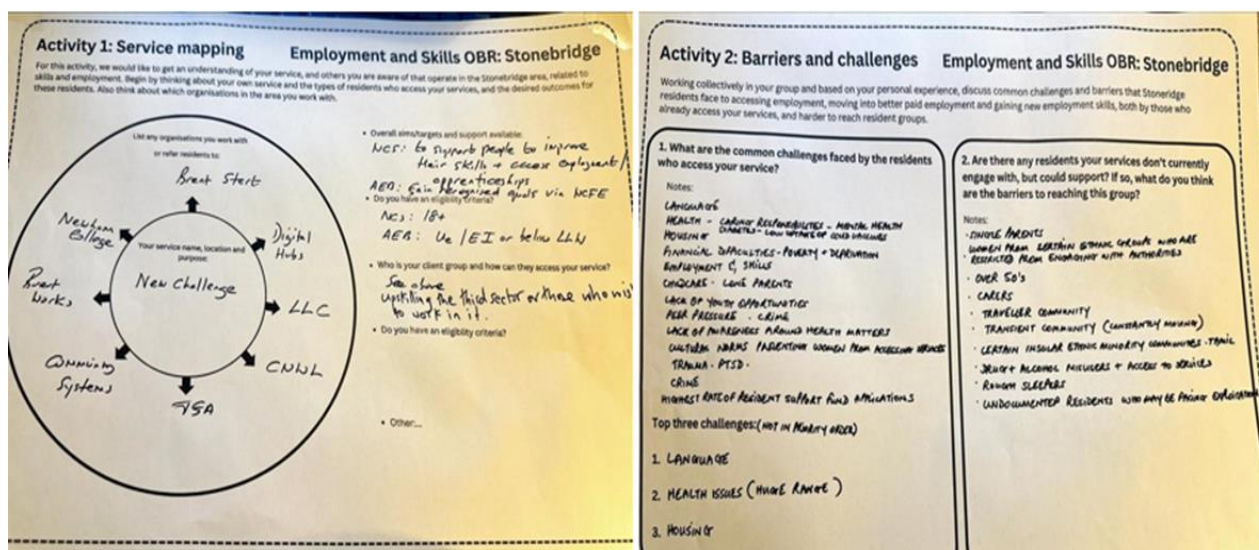 Activity 1: Service mapping
Employment and Skills OBR: Stonebridge
For this activity, we would like to get an understanding of your service, and others you are aware of that operate in the Stonebridge area, related to
skills and employment. Begin by thinking about your own service and the types of residents who access your services, and the desired outcomes for
these residents. Also think about which organisations in the area you work with.
List any organisations you work with
or refer residents to:
Brent Start
Newham
College
Digital
Hubs
Your service name, location and
purpose:
New Challenge
Brent
Works
LLC
Community
Systems
CNWL
TSA
• Overall aims/targets and support available:
NCS: to support people to improve
their skills + access employment/
apprenticeships
AEB: Gain recognised quals via NCFE
• Do you have an eligibility criteria?
NCS: 18+
AEB: UE / EI or below LLW
• Who is your client group and how can they access your service?
See above
upskilling the third sector or those who wish
to work in it.
• Do you have an eligibility criteria?
• Other:...
Activity 2: Barriers and challenges
Employment and Skills OBR: Stonebridge
Working collectively in your group and based on your personal experience, discuss common challenges and barriers that Stoneridge
residents face to accessing employment, moving into better paid employment and gaining new employment skills, both by those who
already access your services, and harder to reach resident groups.
1. What are the common challenges faced by the residents
who access your service?
Notes:
LANGUAGE
HEALTH - CARING RESPONSIBILITIES - MENTAL HEALTH
DIABETES - LOW UPTAKE OF COVID VACCINES
HOUSING
FINANCIAL DIFFICULTIES - POVERTY + DEPRIVATION
EMPLOYMENT & SKILLS
CHILDCARE - LONE PARENTS
LACK OF YOUTH OPPORTUNITIES
PEER PRESSURE . CRIME
LACK OF AWARENESS AROUND HEALTH MATTERS
CULTURAL NORMS PREVENTING WOMEN FROM ACCESSING SERVICES
TRAUMA - PTSD -
CRIME
HIGHEST RATE OF RESIDENT SUPPORT FUND APPLICATIONS
Top three challenges: (NOT IN PRIORITY ORDER)
1. LANGUAGE
2. HEALTH ISSUES (HUGE RANGE)
3. HOUSING
2. Are there any residents your services don't currently
engage with, but could support? If so, what do you think
are the barriers to reaching this group?
Notes:
· SINGLE PARENTS
· WOMEN FROM CERTAIN ETHNIC GROUPS WHO ARE
RESTRICTED FROM ENGAGING WITH AUTHORITIES
· OVER 50's
· CARERS
· TRAVELLER COMMUNITY
· TRANSIENT COMMUNITY (CONSTANTLY MOVING)
· CERTAIN INSULAR ETHNIC MINORITY COMMUNITIES - TAMIL
· DRUG + ALCOHOL MISUSERS + ACCESS TO SERVICES
· ROUGH SLEEPERS
· UNDOCUMENTED RESIDENTS WHO MAY BE FACING EXPLOITATION